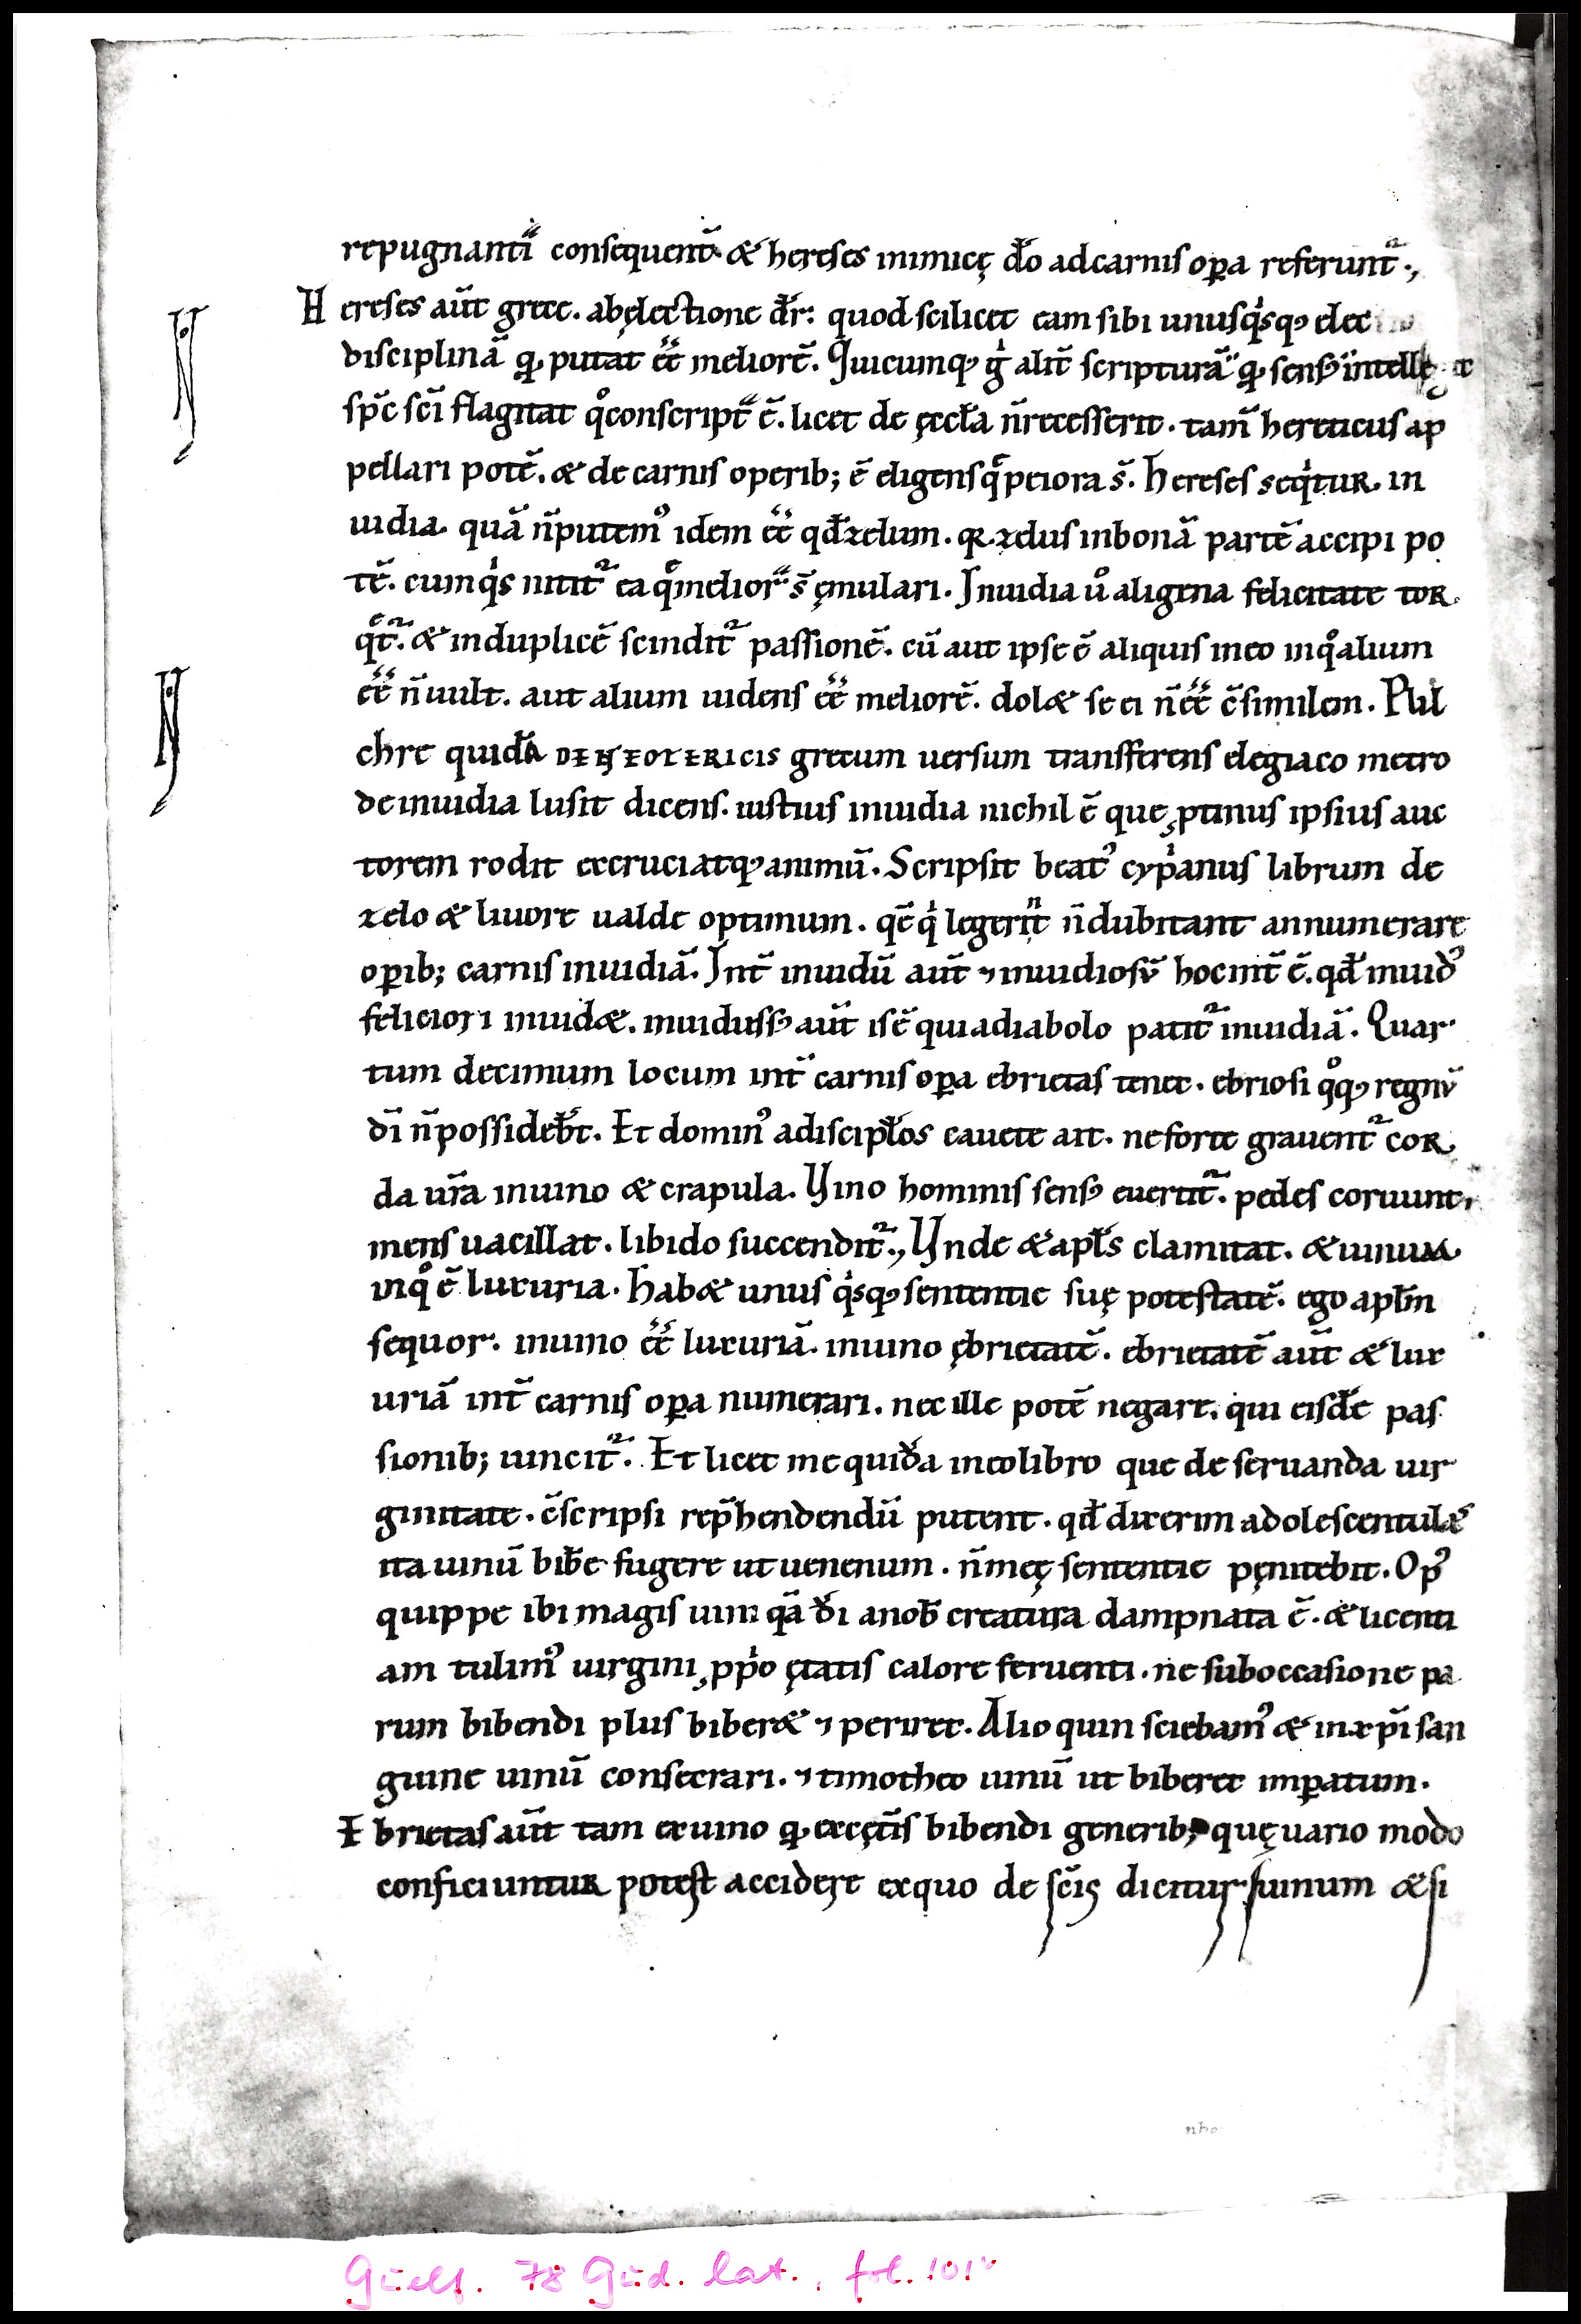 repugnantiũ consequent̃ & hereses inimicę dõ adcarnis oꝑa referunt᷑.,
Hereses aut̃ grece. abęlectione dr̃: quod scilicet eam sibi unusqͥsqꝫ elec
disciplinã qꝫ putat eẽ meliorẽ. Quicumqꝫ gͥ alit̃ scripturã qꝫ sensꝰ intellegit
sp̃c sc̃i flagitat qͦconscript̃ ẽ. licet de ęccl̃a ñrecesserit. tam̃ hereticus ap
pellari potẽ. & de carnis operib; ẽ eligens q̃peiora s̃. Hereses seqͥtur. in
uidia. quã ñputemꝰ idem eẽ qd̃zelum. qꝫ zelus inbonã partẽ accipi po
tẽ. cumqͥs nitit᷑ ea q̃meliora s̃ ęmulari. Inuidia uͦ aligena felicitate tor
q̃t᷑. & induplicẽ scindit᷑ passionẽ. cũ aut ipse ẽ aliquis ineo inqͦalium
eẽ ñuult. aut alium uidens eẽ meliorẽ. dol& se ei ñeẽ c̃similem. Pul
chre quidã DENEOTERICIS grecum uersum transferens elegiaco metro
deinuidia lusit dicens. iustius inuidia nichil ẽ que ꝓtinus ipsius auc
torem rodit excruciatqꝫ animũ. Scripsit beatꝰ cypͥanus librum de
zelo & liuore ualde optimum. qẽ qͥ legerint ñdubitant annumerare
oꝑib; carnis inuidiã. Int̃ inuidũ aut̃ ⁊ inuidiosũ hocint̃ ẽ. qd̃ inuidꝰ
feliciori inuid&. inuidussꝰ aut̃ isẽ quiadiabolo patit᷑ inuidiã. Quar
tum decimum locum int̃ carnis oꝑa ebrietas tenet. ebriosi qͦqꝫ regnũ
dĩ ñpossideb̃t. Et dominꝰ adiscipl̃os cauete ait. neforte grauent᷑ cor
da ur̃a inuino & crapula. Uino hominis sensꝰ euertit᷑. pedes coruunt,
mens uacillat. libido succendit᷑., Unde & apl̃s clamitat. & uinum
inqͦ ẽ luxuria. Hab& unus qͥsqꝫ sententie suę potestatẽ. ego apl̃m
sequor. inuino eẽ luxuriã. inuino ębrietatẽ. ebrietatẽ aut̃ & lux
uriã int̃ carnis oꝑa numerari. nec ille potẽ negare, qui eisdẽ pas
sionib; uincit᷑. Et licet me quidã ineolibro que de seruanda uir
ginitate. c̃scripsi rep̃hendendũ putent. qd̃ dixerim adolescentulãs
ita uinũ bibẽ fugere ut uenenum. ñmeę sententie pęnitebit. Opꝰ
quippe ibi magis uini qã dĩ anob̃ creatura dampnata ẽ. & licenti
am tulimꝰ uirgini ꝓpͥo ętatis calore feruenti. ne suboccasione pa
rum bibendi plus biber& ⁊ periret. Alio quin sciebamꝰ & inxp̃i san
guine uinũ consecrari. ⁊ timotheo uinũ ut biberet imꝑatum.
Ebrietas aut̃ tam exuino qꝫ excęt̃is bibendi generib; quęuario modo
conficiuntur potest accidere exquo de sc̃is dicitur suinum &si
Guelf. 78 Gud. lat., fol. 101ᵛ